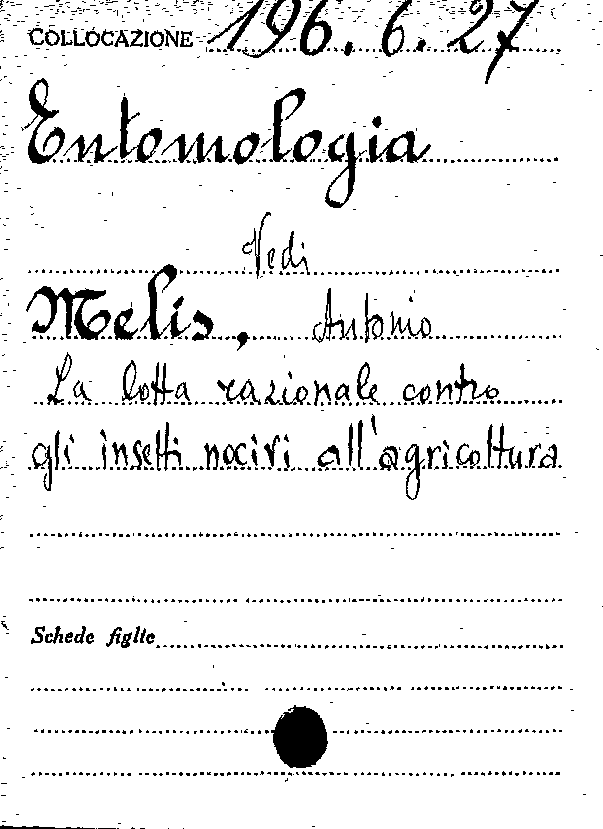 COLLOCAZIONE 196.6.27
Entomologia
Vedi
Melis, Antonio
La lotta razionale contro
gli insetti nocivi all'agricoltura
Schede figlie